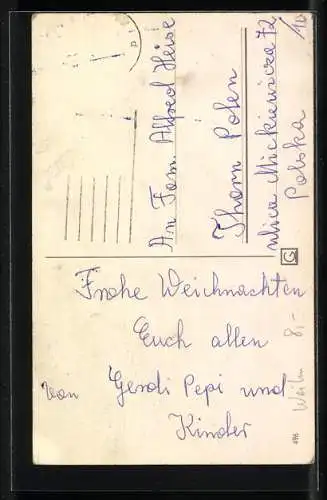 An Fam. Alfred Heise
Thorn Polen
ulica Mickiewicza 72
Polska
G
Frohe Weichnachten
Euch allen
von Gerdi Pepi und
Kinder
Weihn 8,-
498
/10